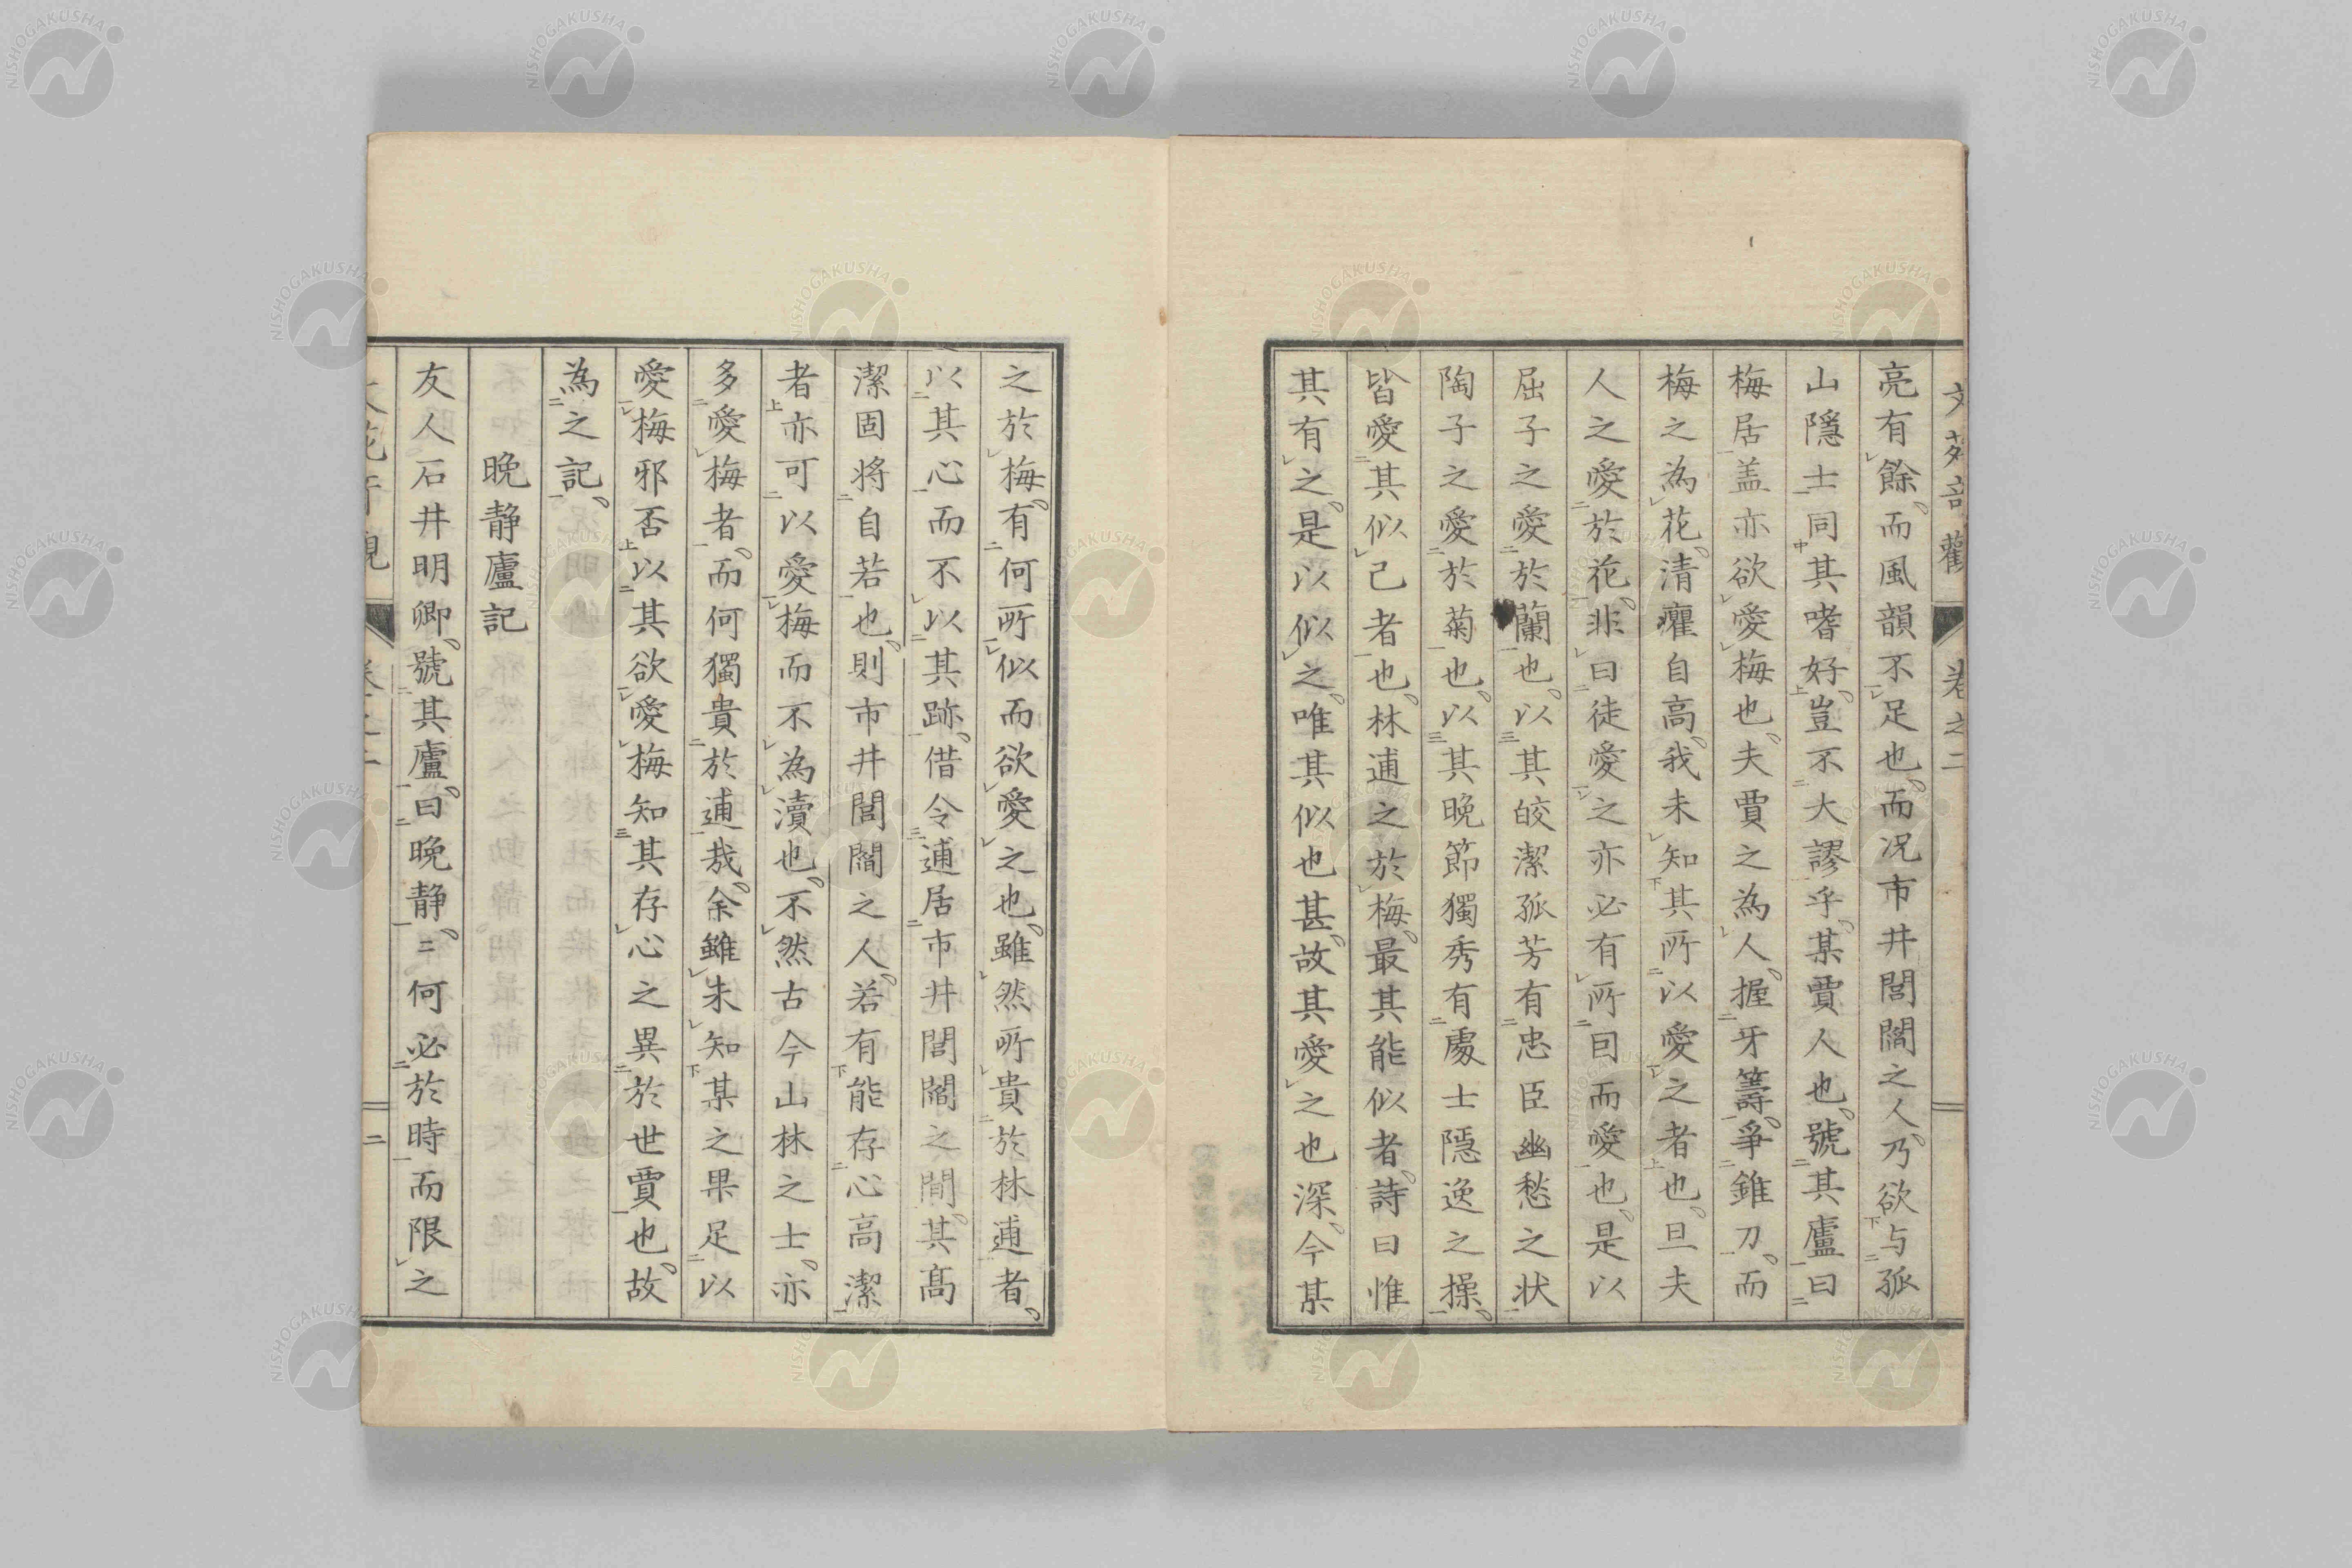 亮有餘而風韻不足也而况市井閭閻之人乃欲与孤
山隱士同其嗜好豈不大謬乎某賈人也號其廬曰
梅居盖亦欲愛梅也夫賈之為人握牙籌爭錐刀而
梅之為花清癯自高我未知其所以愛之者也且夫
人之愛於花非曰徒愛之亦必有所因而愛也是以
屈子之愛於蘭也以其皎潔孤芳有忠臣幽愁之状
陶子之愛於菊也以其晚節獨秀有處士隱逸之操
皆愛其似己者也林逋之於梅最其能似者詩曰惟
其有之是以似之唯其似也甚故其愛之也深今某
之於梅有何所似而欲愛之也雖然所貴於林逋者
以其心而不以其跡借令逋居市井閭閻之間其高
潔固将自若也則市井閭閻之人若有能存心高潔
者亦可以愛梅而不為瀆也不然古今山林之士亦
多愛梅者而何獨貴於逋哉余雖未知某之果足以
愛梅邪否以其欲愛梅知其存心之異於世賈也故
為之記
晩静廬記
友人石井明卿號其廬曰晩静〻何必於時而限之
卷之二
二
NISHOGAKUSHA